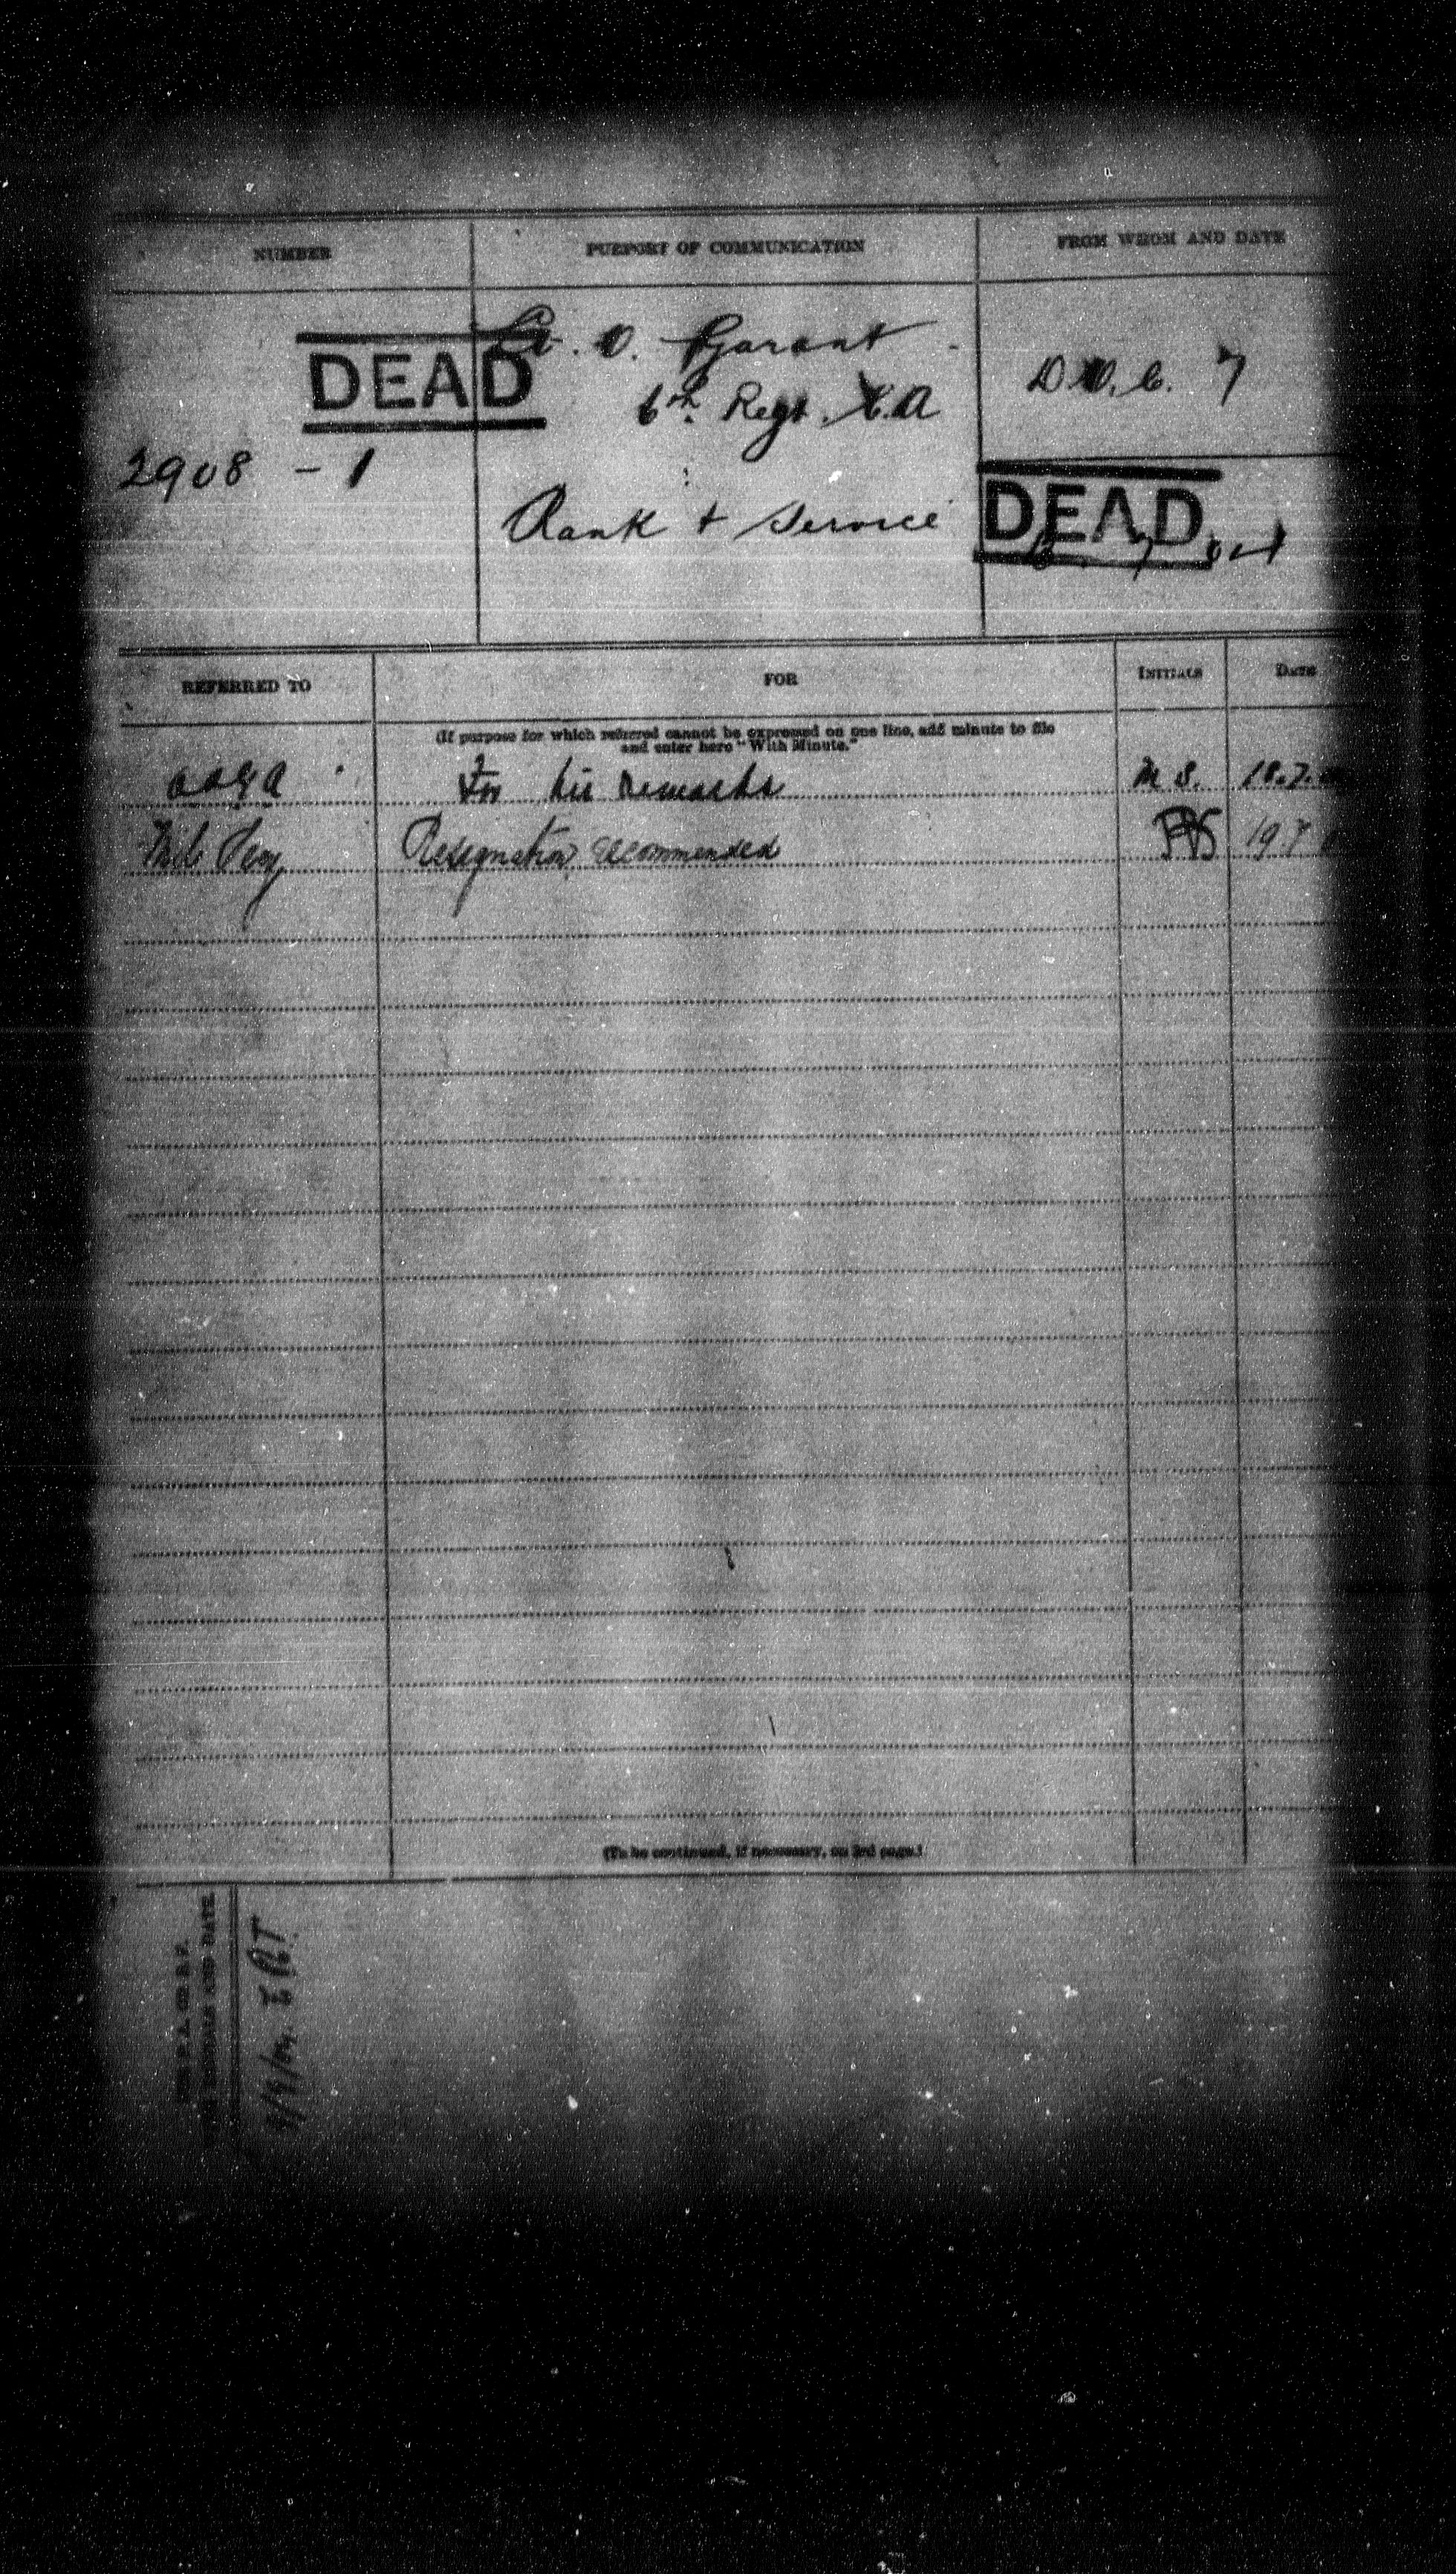 NUMBER
PURPORT OF COMMUNICATION
FROM WHOM AND DATE
DEAD
O. Garant
D.O.C. 7
6th Regt. C.A
2908 - 1
Rank + Service
DEAD
7 04
REFERRED TO
FOR
INITIALS
DATE
(If purpose for which referred cannot be expressed on one line, add minute to file
and enter here "With Minute."
For his remarks
M S.
18.7.
Resignation recommended
19 7
(To be continued, if necessary, on 3rd page.)
AND DATE